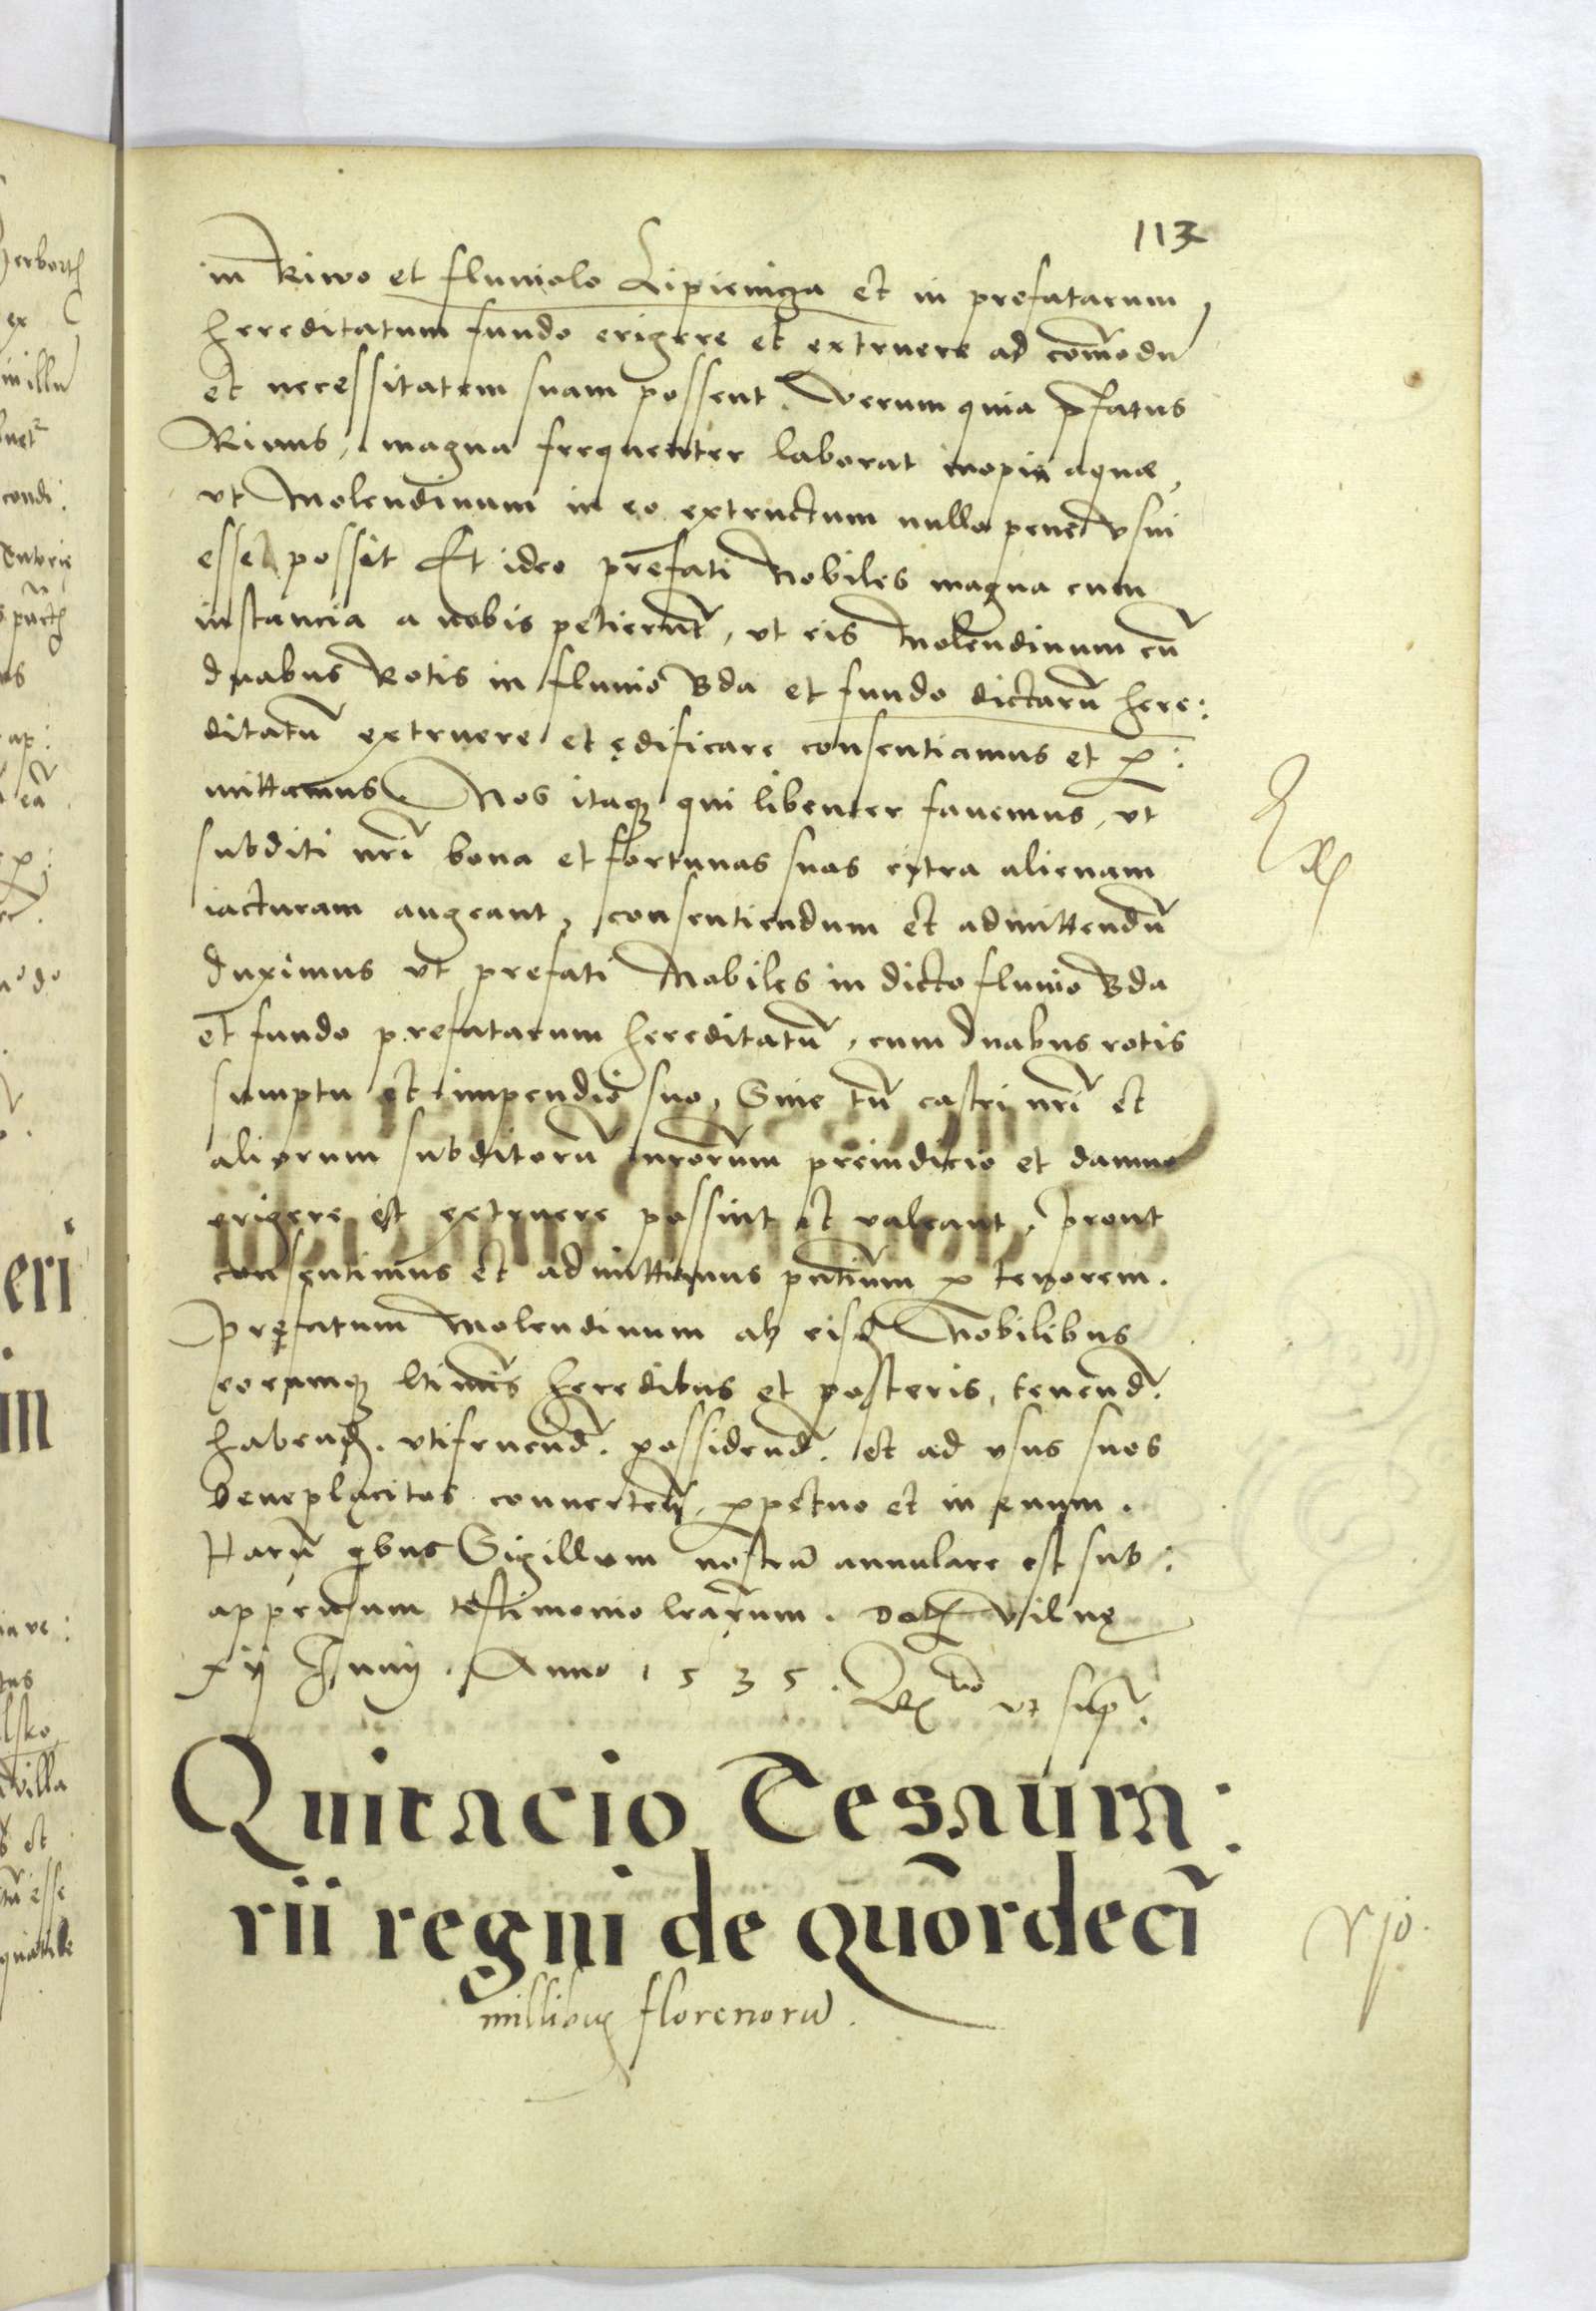 113
in Riwo et fluuiolo Lipieniga et in prefatarum
hereditatum fundo erigere et extruere ad com̄odū
et necessitatem suam possent. Verum quia p̄fatus
Riuus, magna frequenter laborat inopia aquæ,
vt Molendinum in eo extructum nullo pene vsui
esse possit Et ideo prefati Nobiles magna cum
instancia a nobis petierunt, vt eis Molendinum cū
duabus Rotis in fluuio Bda et fundo dictarū here:
ditatū extruere et ędificare consentiamus et ꝑ:
mittamus. Nos itaqꝫ qui libenter fauemus, vt
subditi nr̄i bona et fortunas suas citra alienam
iacturam augeant, consentiendum et admittendū
duximus vt prefati Nobiles in dicto fluuio Bda
et fundo prefatarum hereditatū, cum duabus rotis
sumptu et impendio suo, Sine tn̄ castri nr̄i et
aliorum subditorū nr̄orum preiudicio et damno
erigere et extruere possint et valeant, prout
consentimus et admittimus pn̄tium ꝑ tenorem.
Pręfatum Molendinum ab eisd̄ Nobilibus
eorumqꝫ lt̄imis heredibus et posteris, tenend̄.
habend̄. vtifruend̄. possidend̄. et ad vsus suos
beneplacitos conuertend̄, ꝑpetuo et in euum.
Harū qbus Sigillum nostrū annulare est sub:
appensum testimonio lr̄arum. Dat̄ Vilnę
xij Junij. Anno 1535. Rtio vt sup̄.
Quitacio Tesaura:
rii regni de quōrdeci̅
millibus florenorū.